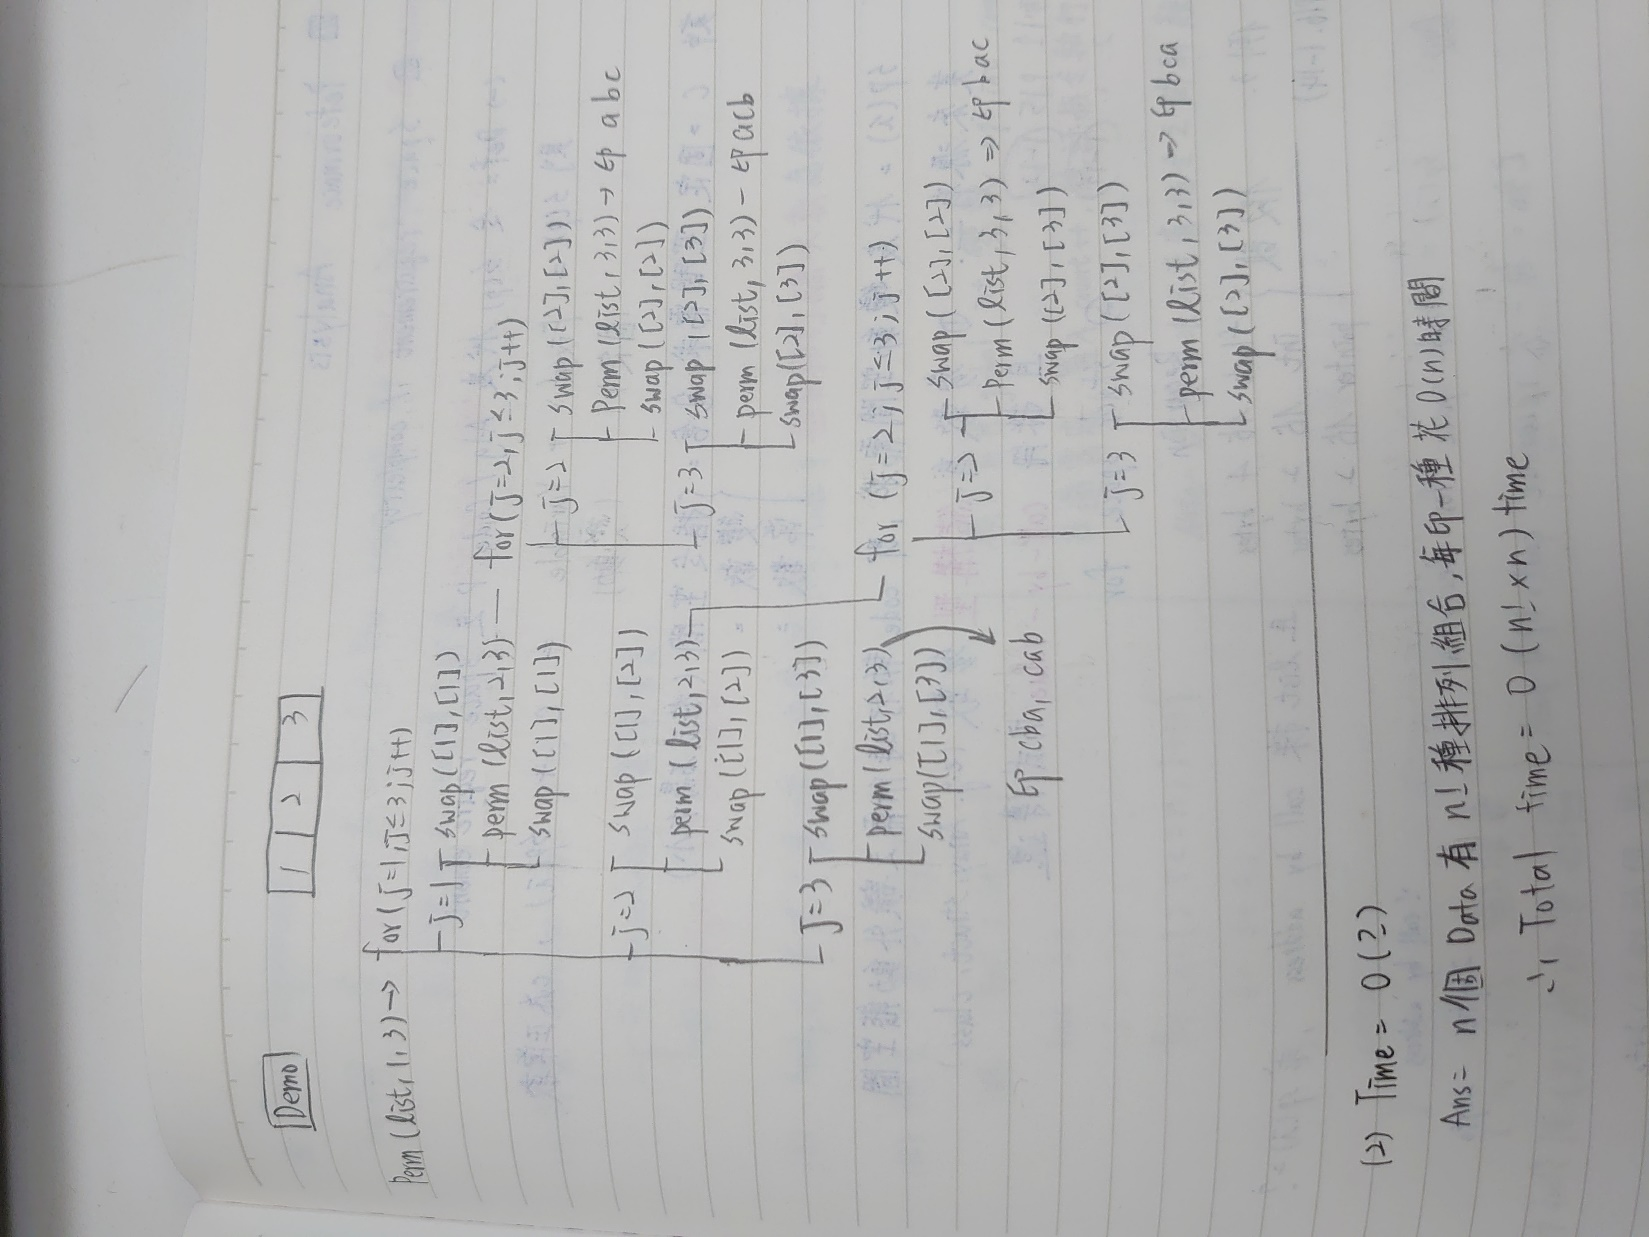 Demo
1 2 3
Perm (list, 1, 3) → for (j=1; j≤3; j++)
j=1 swap ([1], [1])
perm (list, 2, 3) — for (j=2; j≤3; j++)
swap ([1], [1])
j=2 swap ([2], [2])
Perm (list, 3, 3) → 印 abc
swap ([2], [2])
j=3 swap ([2], [3])
perm (list, 3, 3) - 印 acb
swap ([2], [3])
j=2 swap ([1], [2])
perm (list, 2, 3) for (j=2; j≤3; j++)
swap ([1], [2])
j=2 swap ([2], [2])
Perm (list, 3, 3) ⇒ 印 bac
swap ([2], [3])
j=3 swap ([2], [3])
perm (list, 3, 3) → 印 bca
swap ([2], [3])
j=3 swap ([1], [3])
perm (list, 2, 3)
swap ([1], [3])
印 cba, cab
(2) Time = O(?)
Ans = n個 Data 有 n! 種排列組合, 每印一種花 O(n)時間
∴ Total time = O (n! × n) time